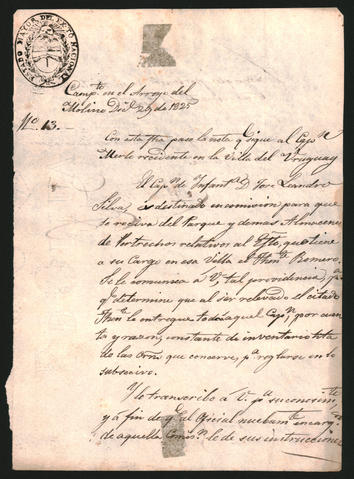 ESTADO MAYOR DEL EXTO NACIONAL
Campto en el Arroyo del
Molino Dice 29 de 1825
No 13.
Con esta fha paso la nota q sigue al Capn
Merlo recidente en la Villa del Uruguay
El Capn de Infanta D Jose Leandro
Silva, es destinado en comision para que
se reciva del Parque y demas Almacenes
de Pertrechos relativos al Exto, que tiene
a su Cargo en esa Villa el Thene Romero.
Se le comunica a V, tal providencia, pa
q determine que al ser relevado el citado
Thene le entregue todo a aquel Capn, por cuen
ta y razon, constante de inventario
de las que concerve, pa reglarse en lo
subsecivo.
Y lo transcribo a V. pa su conosimte
y a fin de q al Oficial nuebamte encargo
de aquella Comon le de sus instrucciones